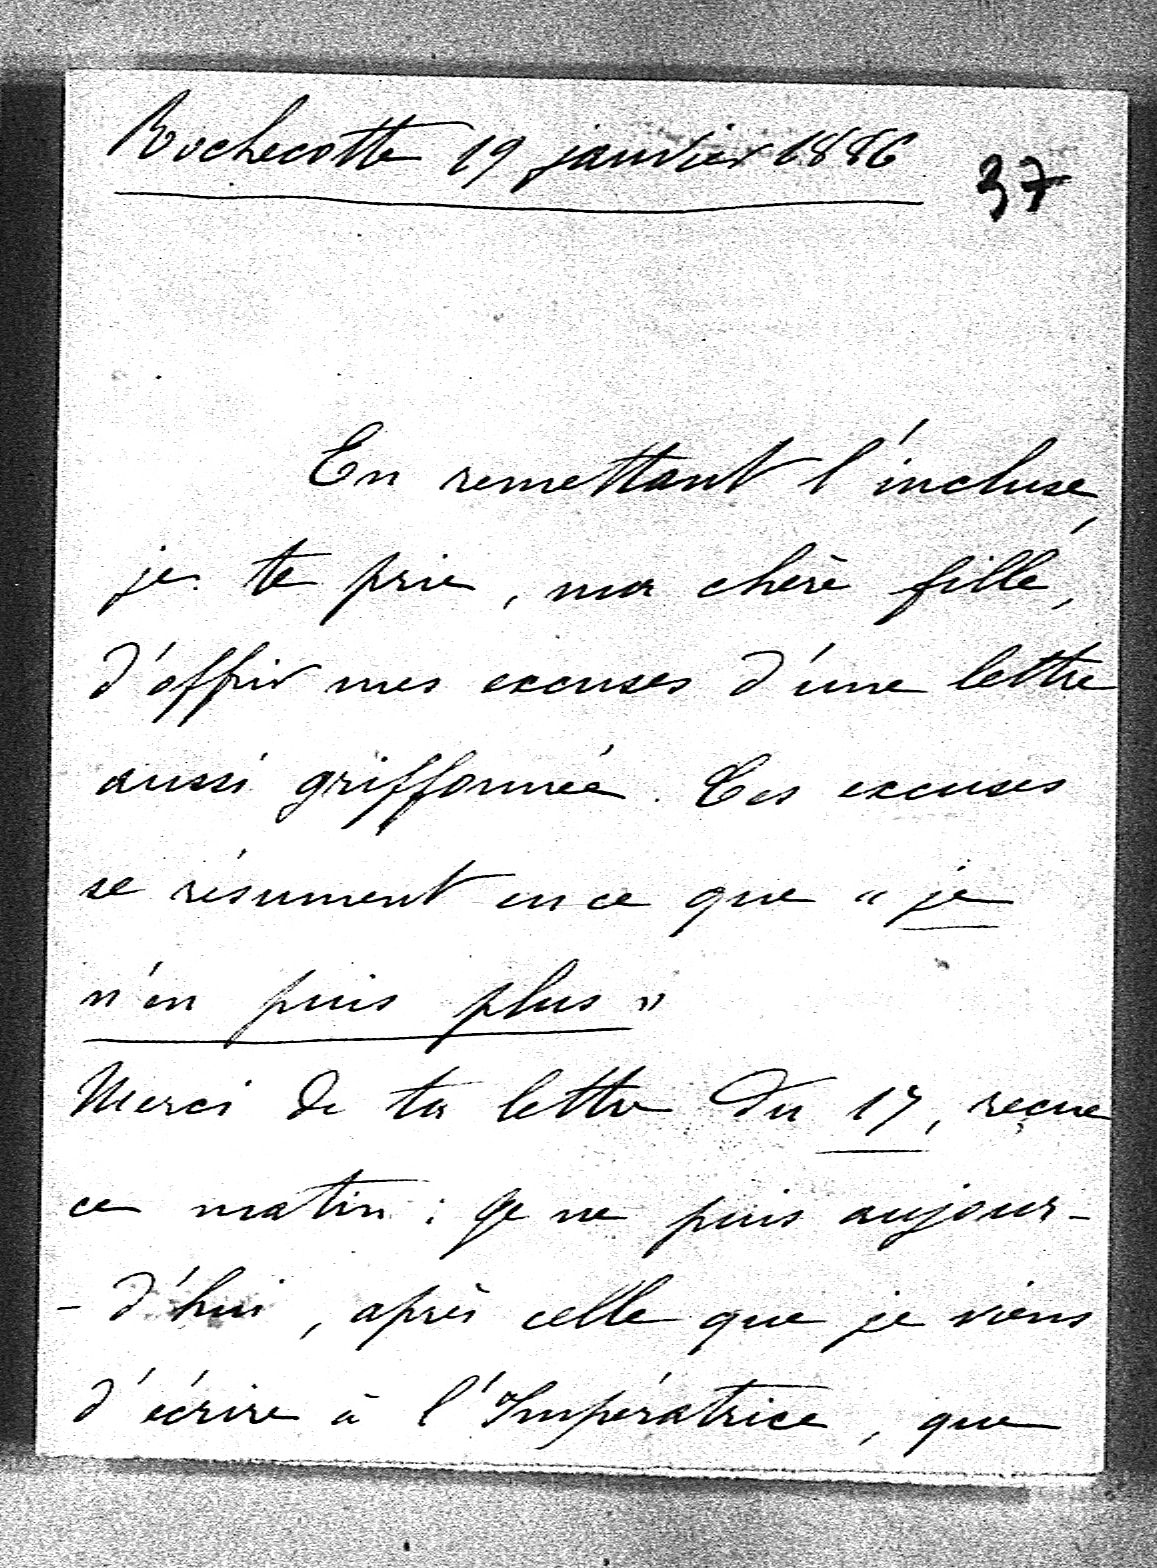 Rochecotte 19 janvier 1886
37
En remettant l'incluse,
je te prie, ma chère fille,
d'offrir mes excuses d'une lettre
aussi griffonnée. Ces excuses
se résument en ce que "je
n'en puis plus"
Merci de ta lettre du 17, reçue
ce matin : Je ne puis aujour-
- d'hui, après celle que je viens
d'écrire à l'Impératrice, que